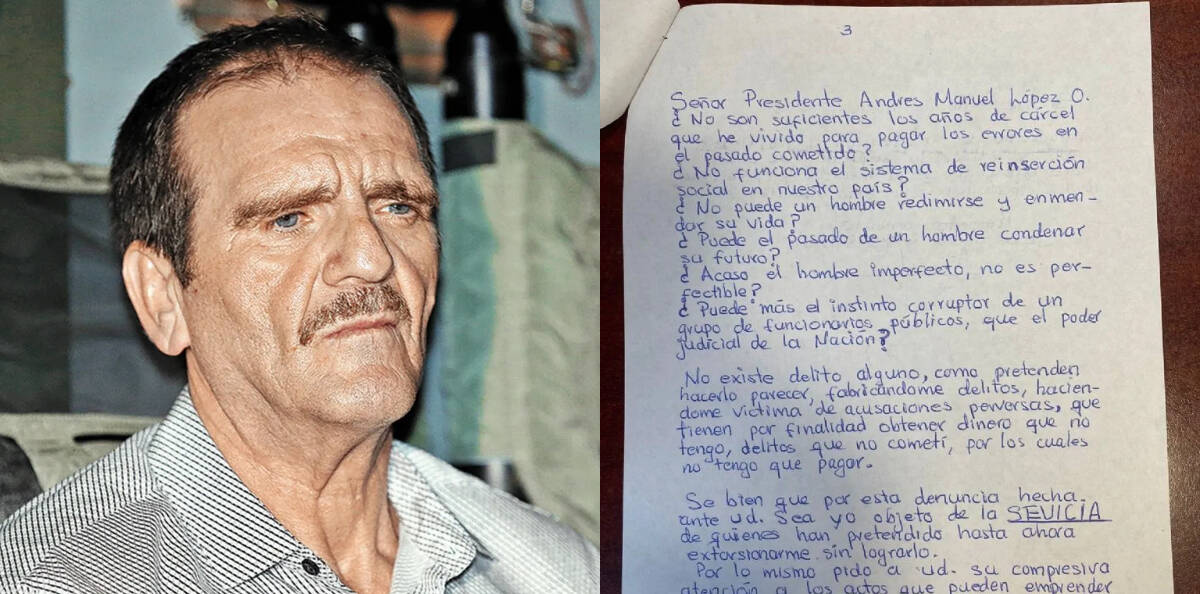 3
Señor Presidente Andres Manuel López O.
¿ No son suficientes los años de cárcel
que he vivido para pagar los errores en
el pasado cometido?
¿ No funciona el sistema de reinserción
social en nuestro país?
¿ No puede un hombre redimirse y enmen-
dar su vida?
¿ Puede el pasado de un hombre condenar
su futuro?
¿ Acaso el hombre imperfecto, no es per-
fectible?
¿ Puede más el instinto corruptor de un
grupo de funcionarios públicos, que el poder
judicial de la Nación?
No existe delito alguno, como pretenden
hacerlo parecer, fabricándome delitos, hacien-
dome victima de acusaciones perversas, que
tienen por finalidad obtener dinero que no
tengo, delitos que no cometí, por los cuales
no tengo que pagar.
Se bien que por esta denuncia hecha
ante ud. Sea yo objeto de la SEVICIA
de quienes han pretendido hasta ahora
extorsionarme sin lograrlo.
Por lo mismo pido a ud. su compresiva
atención a los actos que pueden emprender